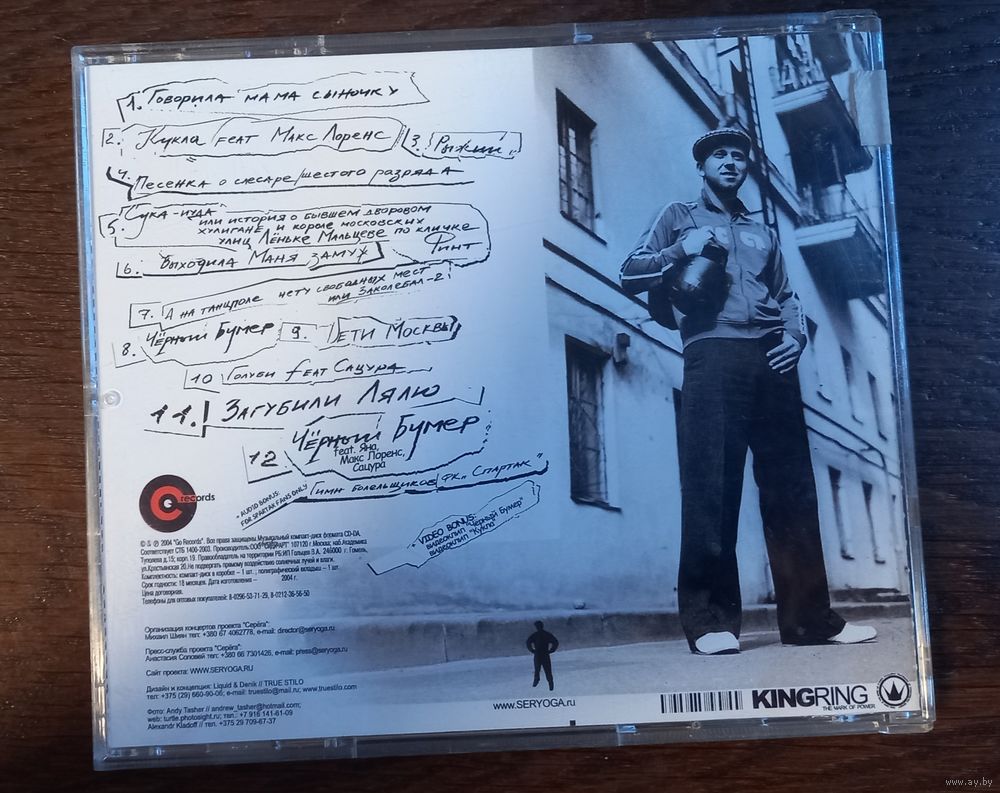 1. Говорила мама сыночку
2. Кукла feat Макс Лоренс
3. „Рыжий"
4. Песенка о слесаре шестого разряда
5. Сука-иуда
или история о бывшем дворовом
хулигане и короле московских
улиц Лёньке Мальцеве по кличке
Финт
6. Выходила Маня замуж
7. А на танцполе нету свободных мест
или Заколебал-2
8. Чёрный Бумер
9. Дети Москвы
10 Голуби feat Сацура
11. Загубили Лялю
12 Чёрный Бумер
feat. Яна,
Макс Лоренс,
Сацура
+ AUDIO BONUS:
FOR SPARTAK FANS ONLY
Гимн болельщиков ФК „Спартак"
+ VIDEO BONUS:
видеоклип "Черный Бумер"
видеоклип "Кукла"
records
© & ℗ 2004 "Go Records". Все права защищены. Музыкальный компакт-диск формата CD-DA.
Соответствует СТБ 1400-2003. Производитель: 107120 г.Москва; наб.Академика
Туполева д.15; корп.19. Правообладатель на территории РБ:ИП Гольцев В.А. 246000 г. Гомель,
ул.Крестьянская 20.Не подвергать прямому воздействию солнечных лучей и влаги.
Комплектность: компакт-диск в коробке – 1 шт.; полиграфический вкладыш – 1 шт.
Срок годности: 18 месяцев. Дата изготовления – 2004 г.
Цена договорная.
Телефоны для оптовых покупателей: 8-0296-53-71-29, 8-0212-36-56-50
Организация концертов проекта "Серёга":
Михаил Шиян тел: +380 67 4062778, e-mail: director@seryoga.ru
Пресс-служба проекта "Серёга":
Анастасия Соловей тел: +380 66 7301426, e-mail: press@seryoga.ru
Сайт проекта: WWW.SERYOGA.RU
Дизайн и концепция: Liquid & Denik // TRUE STILO
тел: +375 (29) 660-90-06; e-mail: truestilo@mail.ru; www.truestilo.com
Фото: Andy Tasher // andrew_tasher@hotmail.com;
web: turtle.photosight.ru; тел.: +7 916 141-61-09
Alexandr Kladoff // тел. +375 29 709-67-37
www.SERYOGA.ru
KINGRING
THE MARK OF POWER
www.ay.by